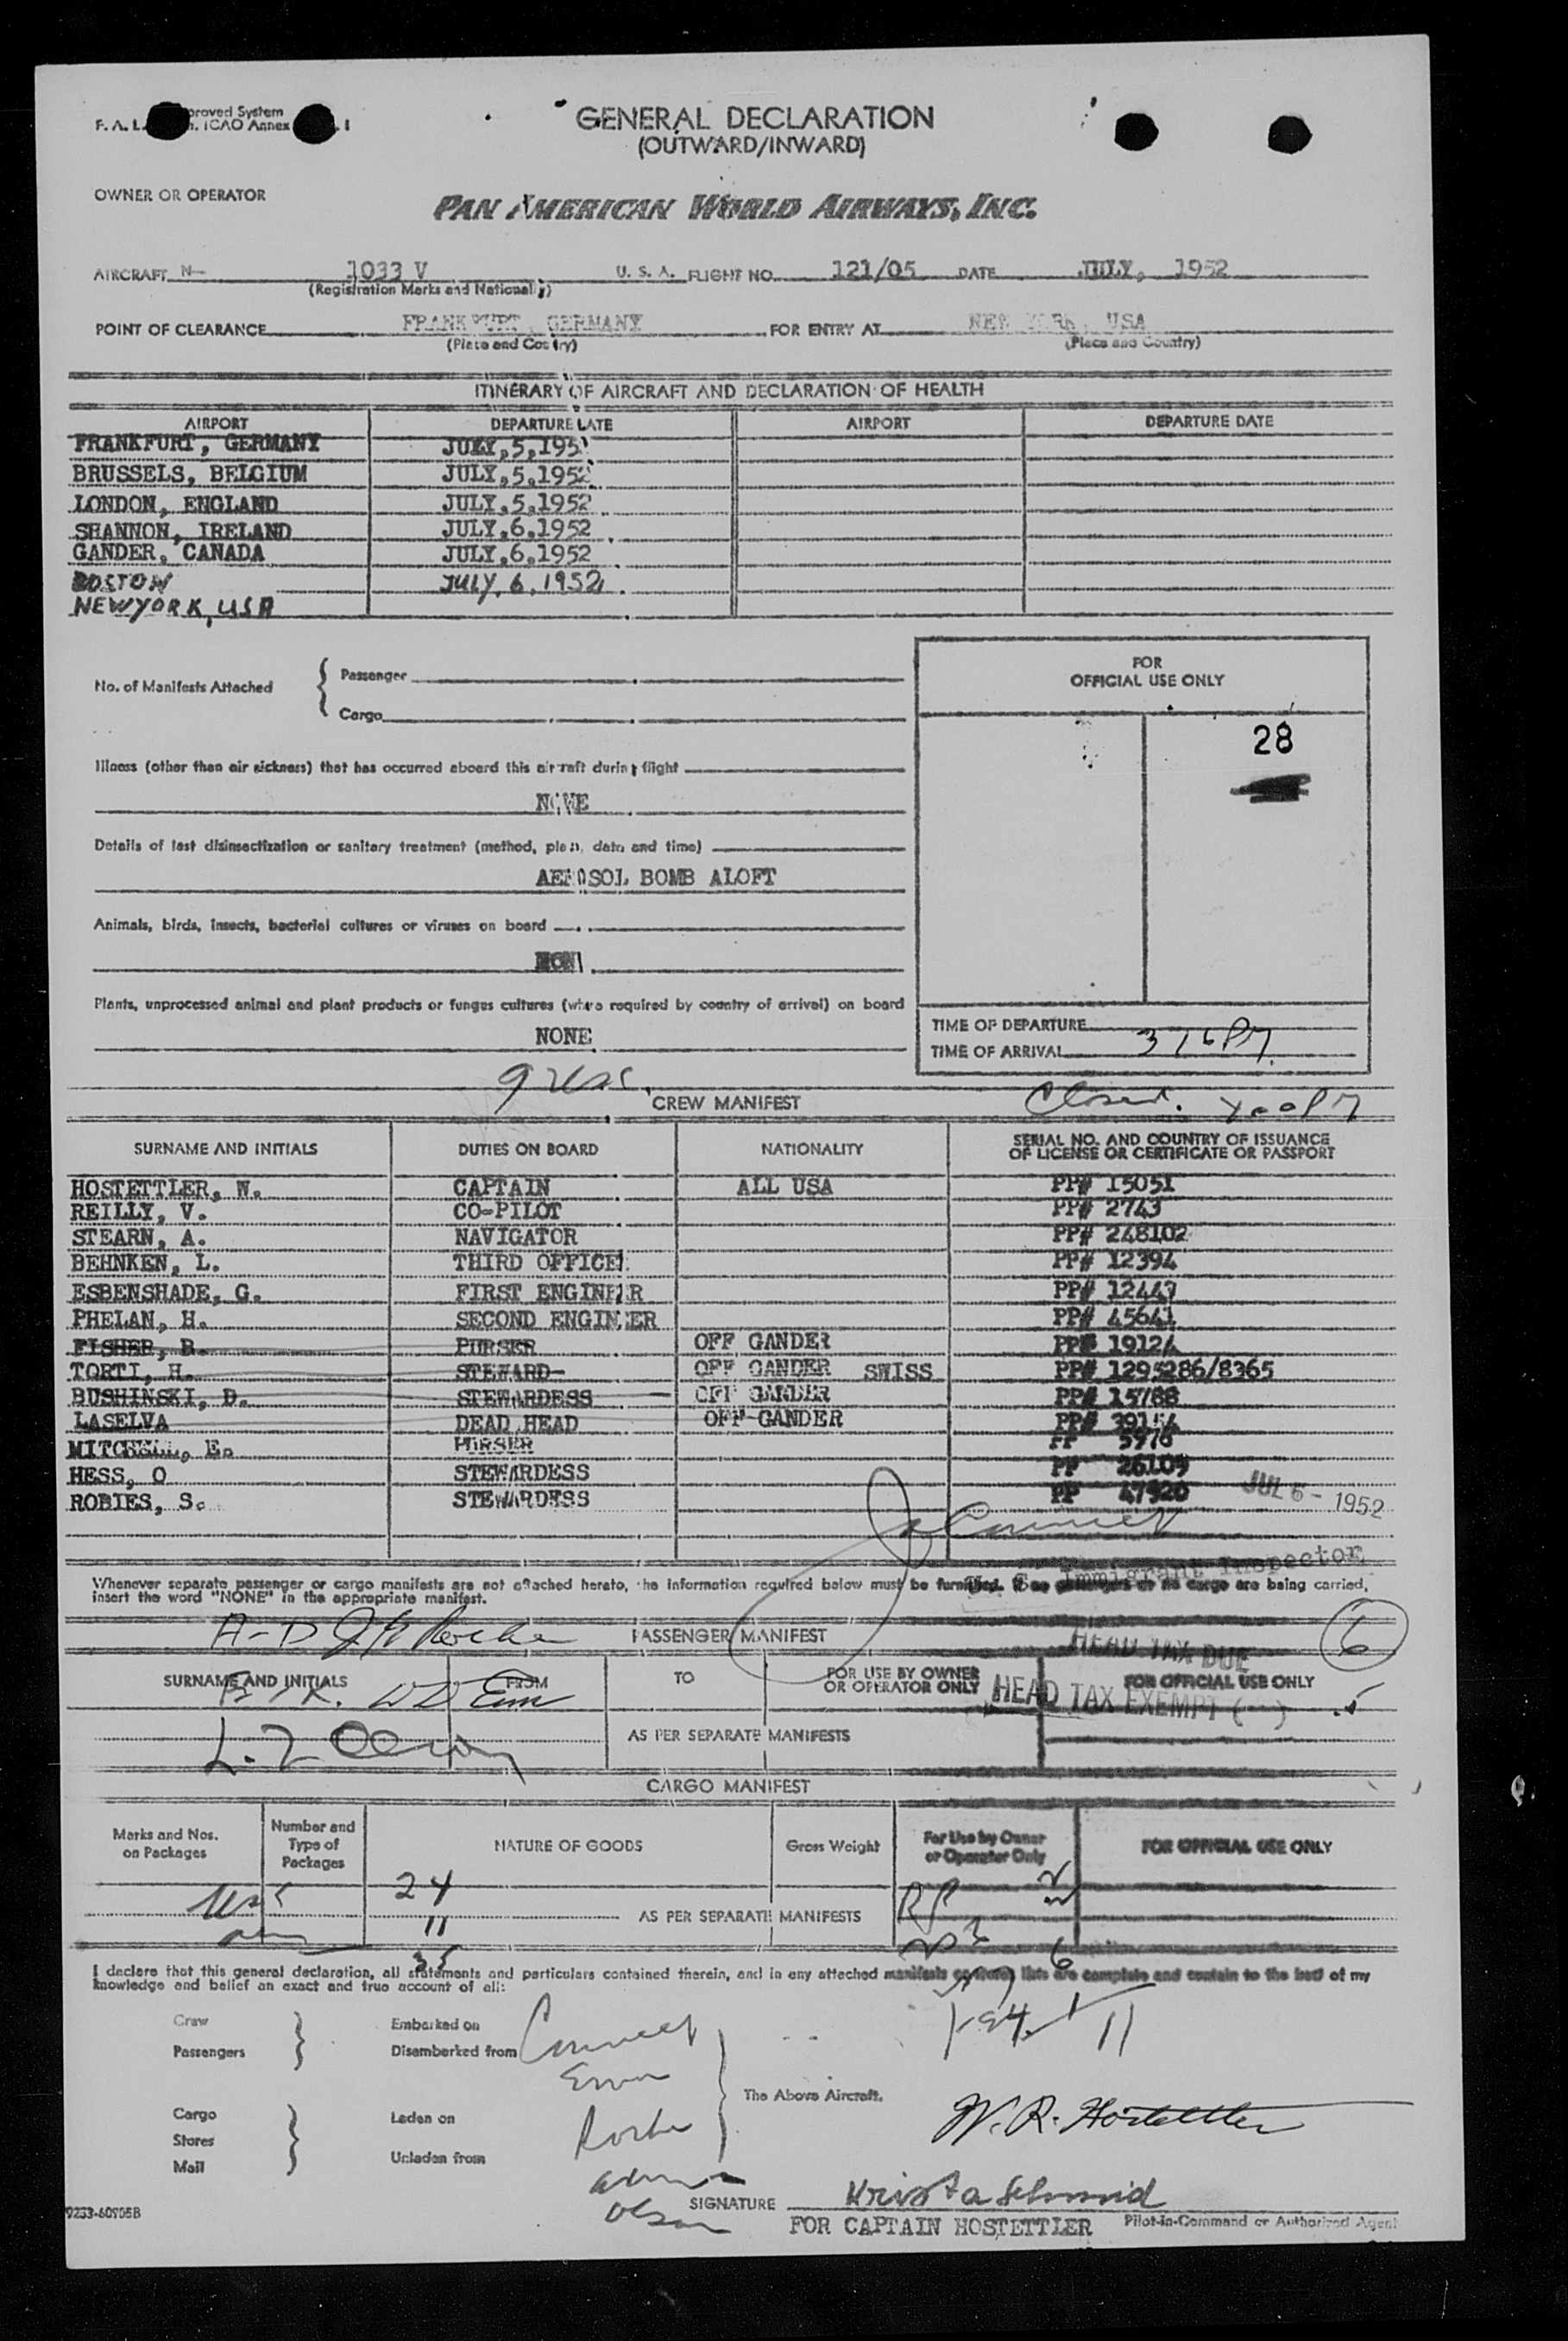 proved System
F. A. L. n. ICAO Annex . 1
GENERAL DECLARATION
(OUTWARD/INWARD)
OWNER OR OPERATOR
PAN AMERICAN WORLD AIRWAYS, INC.
AIRCRAFT N- 1033 V U. S. A. FLIGHT NO. 121/05 DATE JULY, 1952
(Registration Marks and Nationality)
POINT OF CLEARANCE FRANKFURT, GERMANY FOR ENTRY AT NEW YORK, USA
(Place and Country) (Place and Country)
ITINERARY OF AIRCRAFT AND DECLARATION OF HEALTH
AIRPORT DEPARTURE DATE AIRPORT DEPARTURE DATE
FRANKFURT, GERMANY JULY,5,195
BRUSSELS, BELGIUM JULY,5,1952
LONDON, ENGLAND JULY,5,1952
SHANNON, IRELAND JULY,6,1952
GANDER, CANADA JULY,6,1952
BOSTON JULY, 6, 1952
NEWYORK, USA
No. of Manifests Attached { Passenger
Cargo
FOR
OFFICIAL USE ONLY
28
Illness (other than air sickness) that has occurred aboard this aircraft during flight
NONE
Details of last disinsectization or sanitary treatment (method, place, date and time)
AEROSOL BOMB ALOFT
Animals, birds, insects, bacterial cultures or viruses on board
NON
Plants, unprocessed animal and plant products or fungus cultures (where required by country of arrival) on board
NONE
TIME OF DEPARTURE
TIME OF ARRIVAL 3 16 PM
CREW MANIFEST
Closed.
SURNAME AND INITIALS DUTIES ON BOARD NATIONALITY SERIAL NO. AND COUNTRY OF ISSUANCE
OF LICENSE OR CERTIFICATE OR PASSPORT
HOSTETTLER, W. CAPTAIN ALL USA PP# 15051
REILLY, V. CO-PILOT PP# 2743
STEARN, A. NAVIGATOR PP# 248102
BEHNKEN, L. THIRD OFFICER PP# 12394
ESBENSHADE, G. FIRST ENGINEER PP# 12447
PHELAN, H. SECOND ENGINEER PP# 45641
FISHER, B. PURSER OFF GANDER PP# 19124
TORTI, H. STEWARD OFF GANDER SWISS PP# 1295286/8365
BUSHINSKI, D. STEWARDESS OFF GANDER PP# 15788
LASELVA DEAD HEAD OFF GANDER PP# 39154
MITCHELL, E. PURSER PP 5976
HESS, O STEWARDESS PP 26109
ROBIES, S. STEWARDESS PP 47920
JUL 6 - 1952
Immigrant Inspector
Whenever separate passenger or cargo manifests are not attached hereto, the information required below must be furnished. If no passengers or no cargo are being carried,
insert the word "NONE" in the appropriate manifest.
PASSENGER MANIFEST
HEAD TAX DUE 6
SURNAME AND INITIALS FROM TO FOR USE BY OWNER
OR OPERATOR ONLY FOR OFFICIAL USE ONLY
HEAD TAX EXEMPT ( ) 5
AS PER SEPARATE MANIFESTS
CARGO MANIFEST
Marks and Nos.
on Packages
Number and
Type of
Packages
NATURE OF GOODS Gross Weight For Use by Owner
or Operator Only FOR OFFICIAL USE ONLY
24
11 AS PER SEPARATE MANIFESTS
35
I declare that this general declaration, all statements and particulars contained therein, and in any attached manifests or stores lists are complete and contain to the best of my
knowledge and belief an exact and true account of all:
Crew Embarked on
Passengers Disembarked from
The Above Aircraft.
Cargo Laden on
Stores
Mail Unladen from
W. R. Hostettler
Olson
SIGNATURE Krista Schmid
FOR CAPTAIN HOSTETTLER Pilot-in-Command or Authorized Agent
9233-60905B